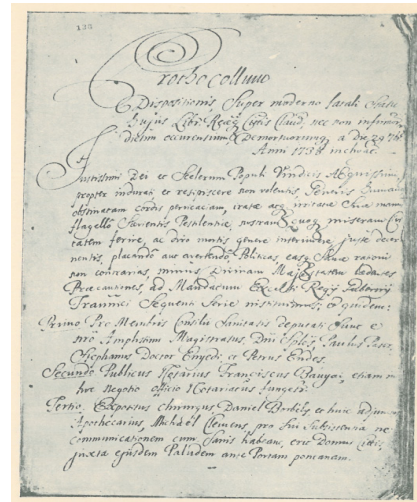 134
Prothocollum
Dispositionis, Super moderno fatali Casu
hujus Libr. Regiæ Cittis Claud, nec non inferiori
dictim occurrentium & Demormorum, a die 29 7bris
Anni 1738 inclusive.
Justissimi Dei et Scelerum Populi Vindicis Æquissimi,
propter indurati et resipiscere non volentis, Gentis Humanæ
obstinatam cordis pervicaciam, iratæ atq irritatæ Suæ manu
flagello Sævientis Pestilentiæ, nostram quoq miseram Civi
tatem ferire, ac diro mortis genere interimere, juste decer
nentis, placandæ aut avertendæ Politicas, easq Sanæ rationi
non contrarias, minus Divinam Majestatem lædentes
Præcautiones ad Mandatum Excelsi Regii Gubernii
Tranniei Sequenti Serie instituimus; & quidem:
Primo Pro Membris Consilii Sanitatis deputati Sunt e
nro Amplissimo Magistratu, Dni Sples. Paulus Pataki
Stephanus Doctor Enyedi, et Petrus Endes.
Secundo Publicus Notarius Franciscus Bányai, etiam in
hoc Negotio officio Notariatus fungetur.
Tertio, Expositus chirurgus Daniel Borbély, et huic adjunctus
Apothecarius, Michaël Clemens, pro Sui Subsistentia ne
communicationem cum Sanis habeant, erit Domus Cittis,
juxta ejusdem Paludem ante Portam pontanam.